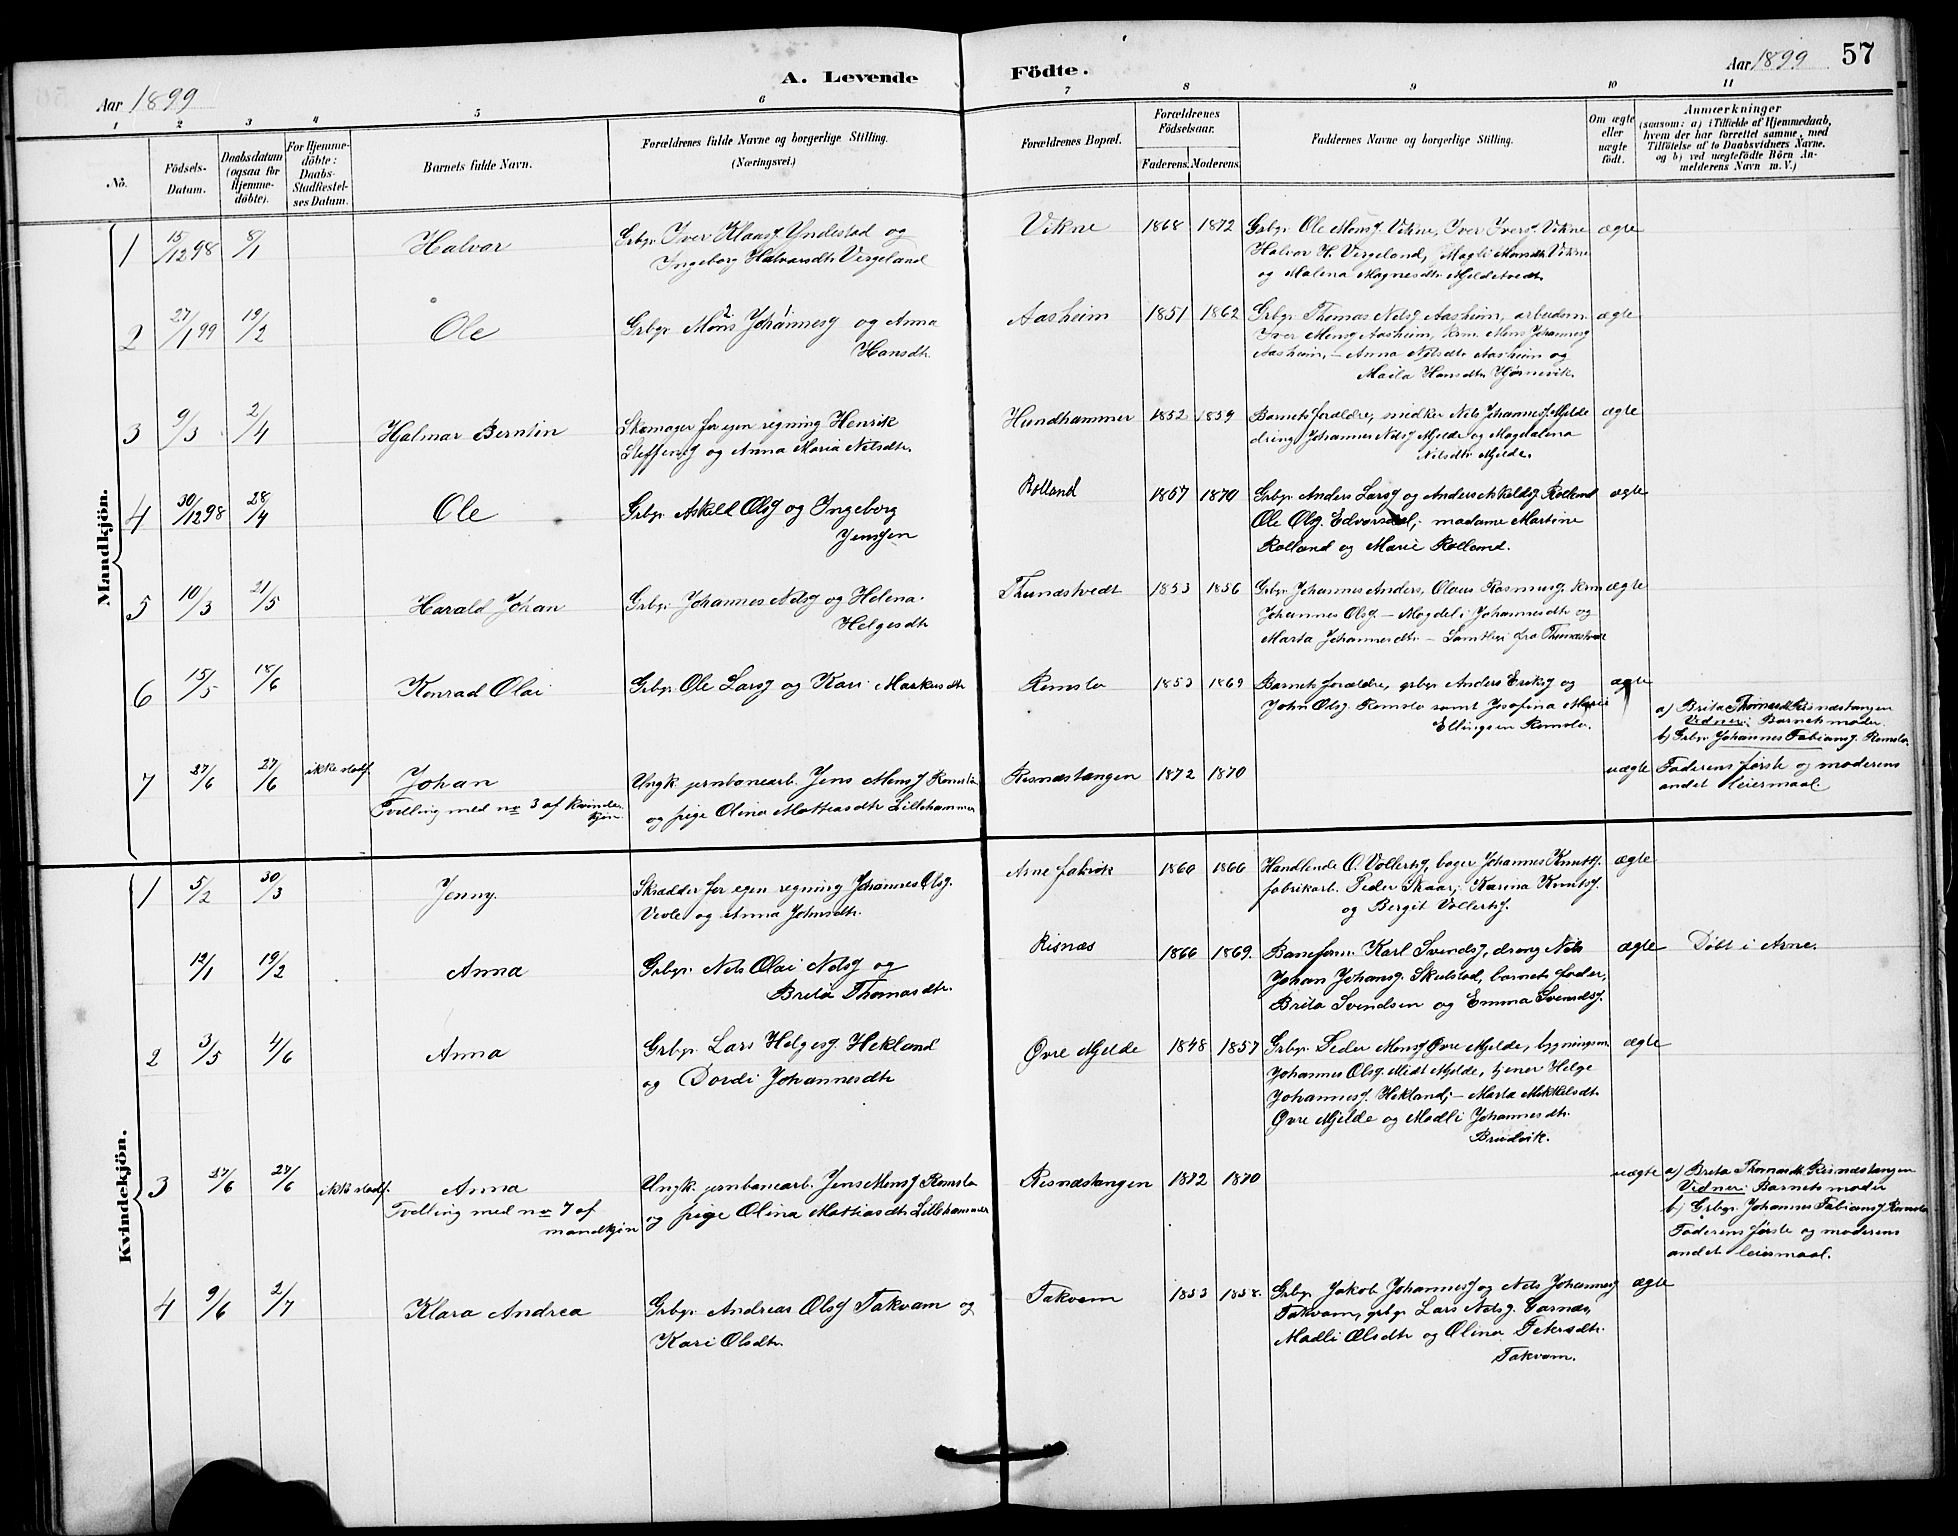 Aar 1899
A. Levende Födte.
Aar 1899
57
1 2 3 4 5 6 7 8 9 10 11
No.
Födsels-
Datum.
Daabsdatum
(ogsaa for
Hjemme-
döbte).
For Hjemme-
döbte:
Daabs-
Stadfæstel-
ses Datum.
Barnets fulde Navn.
Forældrenes fulde Navne og borgerlige Stilling.
(Næringsvei.)
Forældrenes Bopæl.
Forældrenes
Födselsaar.
Faderens. Moderens.
Faddernes Navne og borgerlige Stilling.
Om ægte
eller
uægte
födt.
Anmærkninger
(saasom: a) i Tilfælde af Hjemmedaab,
hvem der har forrettet samme, med
Tilföielse af to Daabsvidners Navne,
og b) ved uægtefödte Börn An-
melderens Navn m. V.)
Mandkjön.
1 15/12 98 8/1 Halvor
Grbgr. Iver Klaasf. Yndestad og
Ingeborg Halvorsdtr. Vergeland
Vikne 1868 1872
Grbgr. Ole Monsf. Vikne, Iver Iversf. Vikne
Halvor H. Vergeland, Magli Monsdtr. Vikne
og Malena Magnesdtr. Mjeldetvedt.
ægte
2 27/1 99 19/2 Ole
Grbgr. Mons Johannesf. og Anna
Hansdtr.
Aasheim 1851 1862
Grbgr. Thomas Nilsf. Aasheim, arbeidsm.
Iver Monsf. Aasheim, krm. Mons Johannesf.
Aasheim, – Anna Nilsdtr. Aasheim og
Maila Hansdtr. Hjørnevik.
ægte
3 9/3 2/4 Hjalmar Berntin
Skomager for egen regning Henrik
Steffensf. og Anna Maria Nilsdtr.
Hundhammer 1852 1859
Barnets forældre, snedker Nils Johannesf. Mjelde
dreng Johannes Nilsf. Mjelde og Magdalena
Nilsdtr. Mjelde.
ægte
4 30/12 98 28/4 Ole
Grbgr. Askild Olsf. og Ingeborg
Jensen
Rolland 1857 1870
Grbgr. Anders Larsf. og Anders Askildsf. Rolland
Ole Olsf. Edvarsdal; madame Martine
Rolland og Marie Rolland.
ægte
5 10/3 21/5 Harald Johan
Grbgr. Johannes Nilsf. og Helena
Helgesdtr.
Thunæstvedt 1853 1856
Grbgr. Johannes Anders, Olaus Rasmusf. krm
Johannes Olsf. – Magdeli Johannesdtr. og
Marta Johannesdtr. – Samtlige fra Thunæstvedt
ægte
6 15/5 18/6 Konrad Olai
Grbgr. Ole Larsf. og Kari Markusdtr.
Romslo 1853 1869
Barnets forældre, grbgr. Anders Eriksf. og
John Olsf. Romslo samt Josefina Marie
Ellingsen Romslo.
ægte
7 27/6 27/6 ikke stadf. Johan
Tvelling med no 3 af kvinde-
kjøn.
Ungk. jernbanearb. Jens Monsf. Romslo
og pige Olina Mattiasdtr. Lillehammer
Risnæstangen 1872 1870
uægte
a) Brita Thomasdtr. Risnæstangen
Vidner: Barnets moder.
b) Grbgr. Johannes Fabiansf. Romslo.
Faderens første og moderens
andet leiermaal.
Kvindekjön.
1 5/2 30/3 Jenny.
Skrædder for egen regning Johannes Olsf.
Vevle og Anna Johnsdtr.
Arne fabrik 1860 1866
Handlende O. Vollertsf., bager Johannes Knutsf.
fabrikarb. Peder Skaar; Karina Knutsf.
og Bergit Vollertsf.
ægte
12/1 19/2 Anna
Grbgr. Nils Olai Nilsf. og
Brita Thomasdtr.
Risnæs 1866 1869.
Baneform. Karl Svendsf., dreng Nils
Johan Johansf. Skulstad, barnets fader,
Brita Svendsen og Emma Svendsf.
ægte
Døbt i Arne.
2 3/5 4/6 Anna
Grbgr. Lars Helgesf. Hekland
og Dordi Johannesdtr.
Øvre Mjelde 1848 1857
Grbgr. Peder Monsf. Øvre Mjelde, bygningsm.
Johannes Olsf. Midt Mjelde, tjener Helge
Johannesf. Hekland; – Marta Mikkelsdtr.
Øvre Mjelde og Madli Johannesdtr.
Bruvik.
ægte
3 27/6 27/6 ikke stadf. Anna
Tvelling med no 7 af
mandkjøn
Ungk. jernbanearb. Jens Monsf. Romslo
og pige Olina Mattiasdtr. Lillehammer
Risnæstangen 1872 1870
uægte
a) Brita Thomasdtr. Risnæstangen
Vidner: Barnets moder
b) Grbgr. Johannes Fabiansf. Romslo
Faderens første og moderens
andet leiermaal.
4 9/6 2/7 Klara Andrea
Grbgr. Andreas Olsf. Takvam og
Kari Olsdtr.
Takvam 1853 1858.
Grbgr. Jakob Johannesf. og Nils Johannesf.
Takvam, grbgr. Lars Nilsf. Garnæs,
Madli Olsdtr. og Olina Petersdtr.
Takvam.
ægte